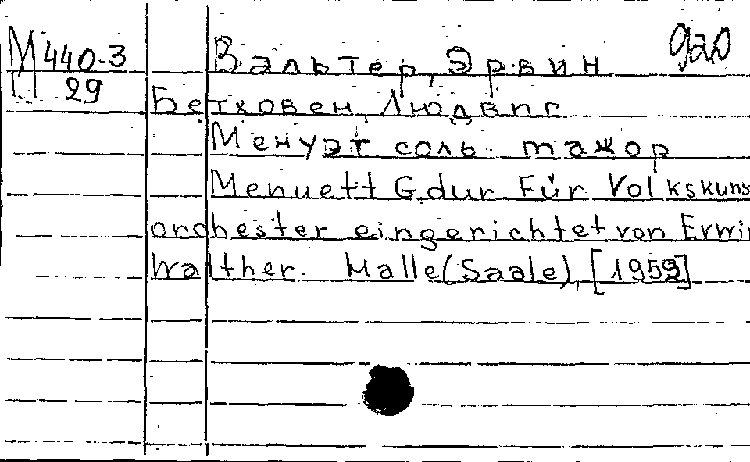 М 440-3
29
Вальтер, Эрвин
Бетховен, Людвиг
Менуэт соль мажор
Menuett G.dur Für Volkskuns
orchester eingerichtet von Erwi
Walther. Halle (Saale), [1959]